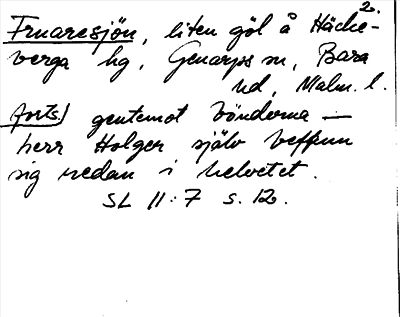 2.
Fruaresjön, liten göl å Häcke-
berga hg, Genarps sn, Bara
hd, Malm. l.
forts.) gentemot bönderna —
herr Holger själv befann
sig redan i helvetet.
SL 11:7 s. 12.